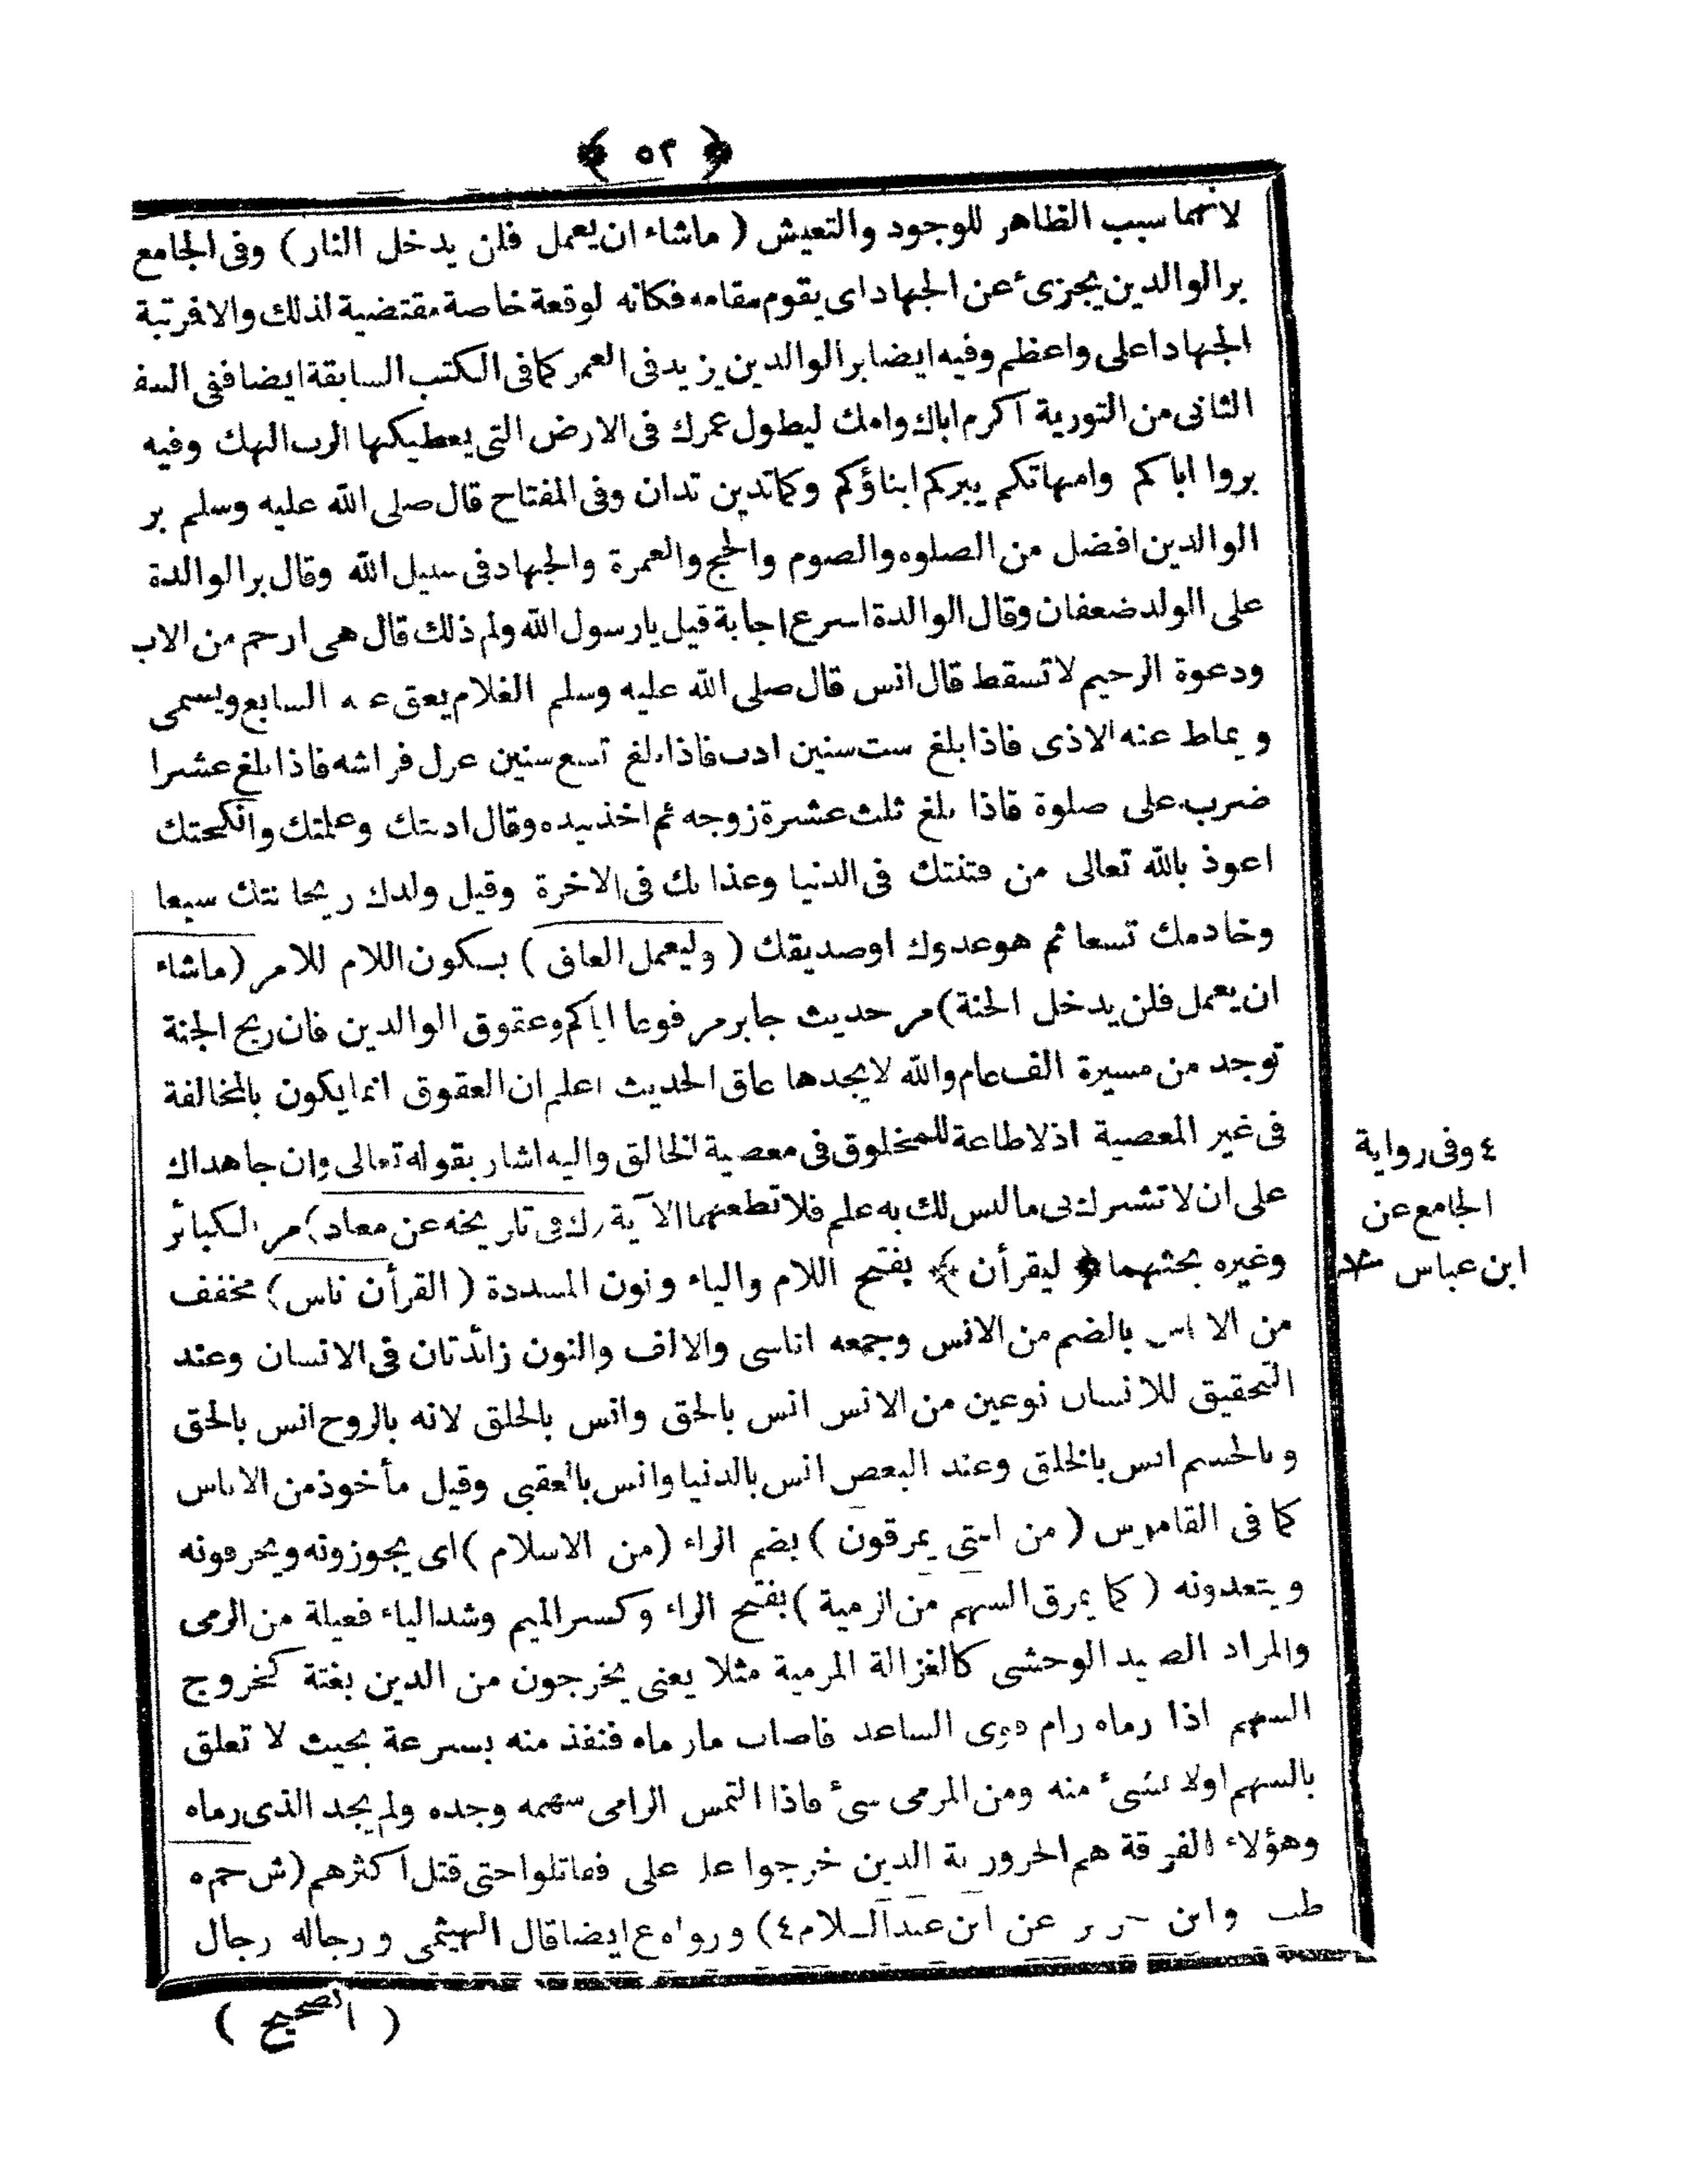 ﴿ ٥٢ ﴾
لانهما سبب الظاهر للوجود والتعيش ( ماشاء ان يعمل فلن يدخل النار ) وفى الجامع
بر الوالدين يجزئ عن الجهاد اى يقوم مقامه فكانه لوقعة خاصة مقتضية لذلك والا فرتبة
الجهاد اعلى واعظم وفيه ايضا بر الوالدين يزيد فى العمر كما فى الكتب السابقة ايضا ففى السف
الثانى من التورية اكرم اباك وامك ليطول عمرك فى الارض التى يعطيكها الرب الهك وفيه
بروا اباكم وامهاتكم يبركم ابناؤكم وكما تدين تدان وفى المفتاح قال صلى الله عليه وسلم بر
الوالدين افضل من الصلوه والصوم والحج والعمرة والجهاد فى سبيل الله وقال بر الوالدة
على الولد ضعفان وقال الوالدة اسرع اجابة قيل يارسول الله ولم ذلك قال هى ارحم من الاب
ودعوة الرحيم لا تسقط قال انس قال صلى الله عليه وسلم الغلام يعق عنه السابع ويسمى
ويماط عنه الاذى فاذا بلغ ست سنين ادب فاذا بلغ تسع سنين عزل فراشه فاذا بلغ عشرا
ضرب على صلوة فاذا بلغ ثلث عشرة زوجه ثم اخذ بيده وقال ادبتك وعلمتك وانكحتك
اعوذ بالله تعالى من فتنتك فى الدنيا وعذابك فى الاخرة وقيل ولدك ريحانتك سبعا
وخادمك تسعا ثم هو عدوك او صديقك ( وليعمل العاق ) بسكون اللام للامر ( ماشاء
ان يعمل فلن يدخل الجنة ) مر حديث جابر مرفوعا اياكم وعقوق الوالدين فان ريح الجنة
توجد من مسيرة الف عام والله لا يجدها عاق الحديث اعلم ان العقوق انما يكون بالمخالفة
فى غير المعصية اذ لا طاعة للمخلوق فى معصية الخالق واليه اشار بقوله تعالى وان جاهداك
على ان لا تشرك بى ما ليس لك به علم فلا تطعهما الآية ( ك فى تاريخه عن معاذ ) مر الكبائر
وغيره بحثهما ﴿ ليقرأن ﴾ بفتح اللام والياء ونون المسددة ( القرأن ناس ) مخفف
من الاناس بالضم من الانس وجمعه اناسى والالف والنون زائدتان فى الانسان وعند
التحقيق للانسان نوعين من الانس انس بالحق وانس بالخلق لانه بالروح انس بالحق
وبالجسم انس بالخلق وعند البعض انس بالدنيا وانس بالعقبى وقيل مأخوذ من الايناس
كما فى القاموس ( من امتى يمرقون ) بضم الراء ( من الاسلام ) اى يجوزونه ويحرفونه
ويتعدونه ( كما يمرق السهم من الرمية ) بفتح الراء وكسر الميم وشد الياء فعيلة من الرمى
والمراد الصيد الوحشى كالغزالة المرمية مثلا يعنى يخرجون من الدين بغتة كخروج
السهم اذا رماه رام قوى الساعد فاصاب مارماه فنفذ منه بسرعة بحيث لا تعلق
بالسهم اولا بشئ منه ومن المرمى شئ فاذا التمس الرامى سهمه وجده ولم يجد الذى رماه
وهؤلاء الفرقة هم الحرورية الدين خرجوا على على فقاتلوا حتى قتل اكثرهم ( ش حم ه
طب وابن جرير عن ابن عبد السلام ٤ ) ورواه ع ايضا قال الهيثمى ورجاله رجال
( الصحيح )
٤ وفى رواية
الجامع عن
ابن عباس